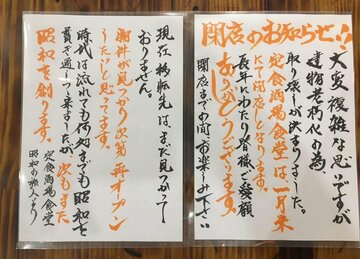 閉店のお知らせ!!
大変複雑な思いですが
建物老朽化の為、
取り壊しが決まりました。
定食酒場食堂は一月末
にて閉店となります。
長年にわたり皆様ご愛顧
ありがとうございます
閉店までの間お楽しみ下さい
現在移転先は、まだ見つかって
おりません。
物件が見つかり次第再オープン
したいと思ってます。
時代は流れても何処までも昭和を
貫き通って来ましたが次もまた
昭和を創ります。
定食酒場食堂
昭和の旅人より